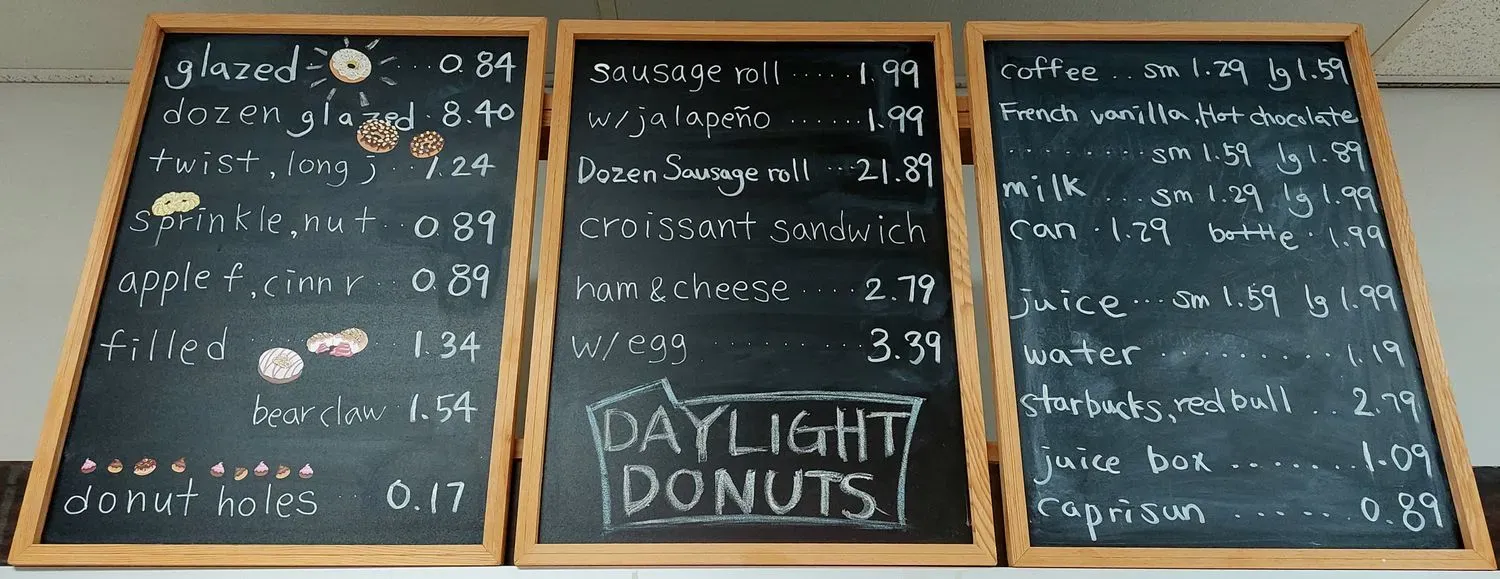 glazed ..... 0.84
dozen glazed . 8.40
twist, long j .. 1.24
sprinkle, nut .. 0.89
apple f, cinn r .. 0.89
filled . 1.34
bear claw . 1.54
donut holes . 0.17
sausage roll ..... 1.99
w/jalapeño ...... 1.99
Dozen Sausage roll ... 21.89
croissant sandwich
ham & cheese .... 2.79
w/egg ......... 3.39
DAYLIGHT
DONUTS
coffee .. sm 1.29 lg 1.59
French vanilla, Hot chocolate
......... sm 1.59 lg 1.89
milk ... sm 1.29 lg 1.99
can . 1.29 bottle . 1.99
juice ... sm 1.59 lg 1.99
water ......... 1.19
starbucks, red bull .. 2.79
juice box ....... 1.09
caprisun ...... 0.89